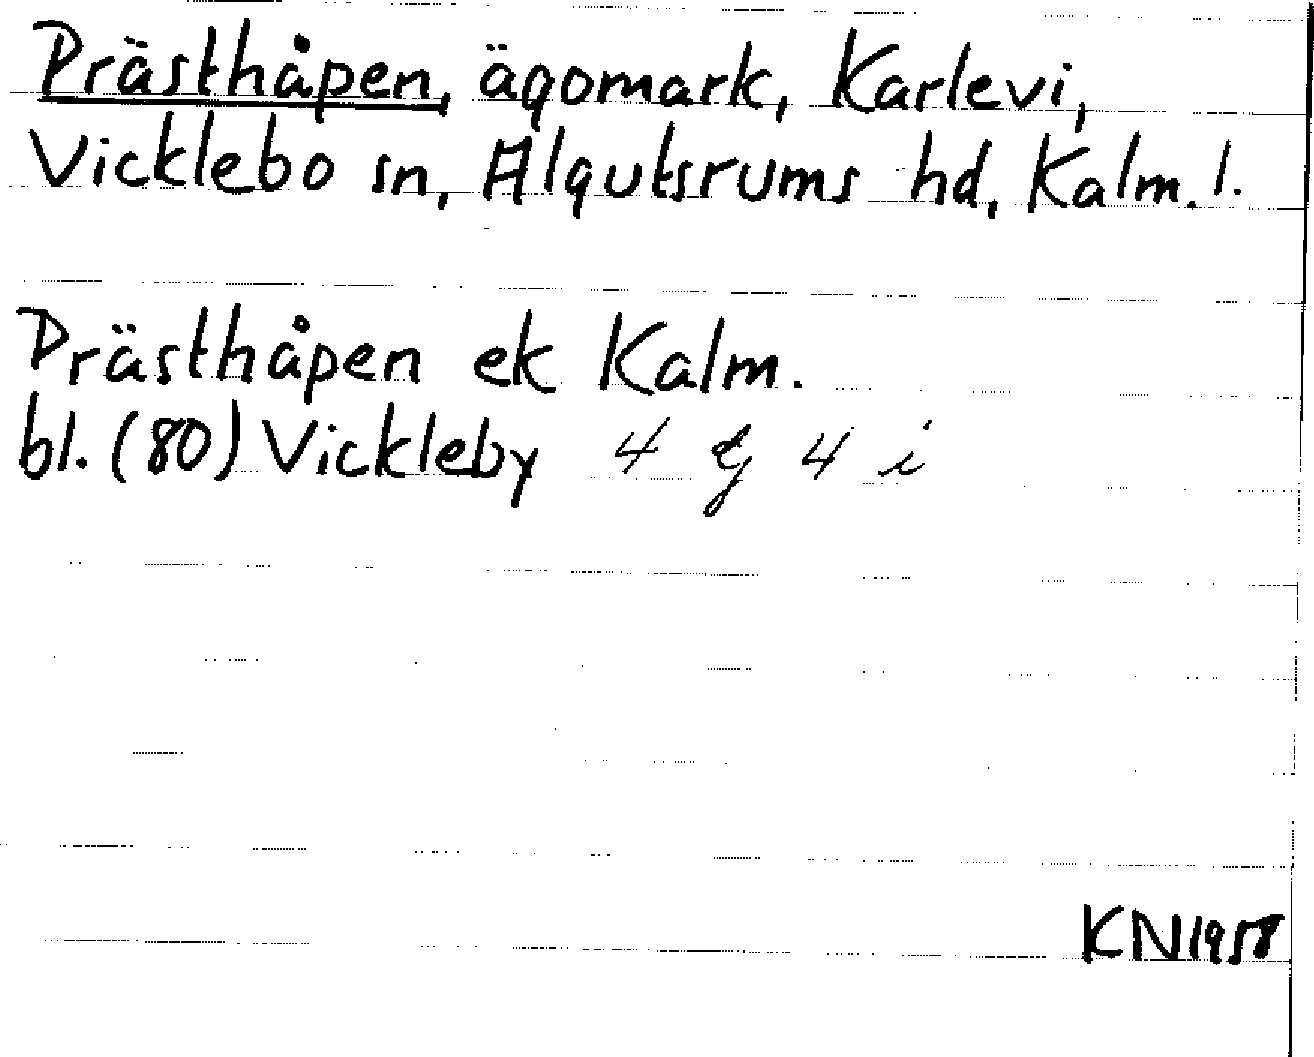 Prästhåpen, ägomark, Karlevi,
Vicklebo sn, Algutsrums hd, Kalm. l.
Prästhåpen ek Kalm.
bl. (80) Vickleby 4 g 4 i
KN 1958